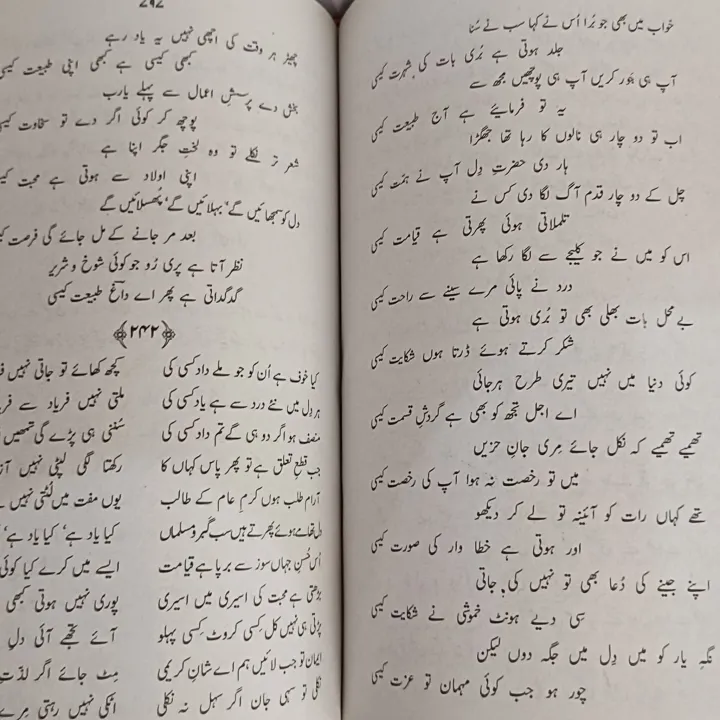 خواب میں بھی جو بُرا اُس نے کہا سب نے سُنا
جلد ہوتی ہے بُری بات کی شہرت کیسی
آپ ہی جَور کریں آپ ہی پوچھیں مجھ سے
یہ تو فرمایئے ہے آج طبیعت کیسی
اب تو دو چار ہی نالوں کا رہا تھا جھگڑا
ہار دی حضرتِ دل آپ نے ہمّت کیسی
چل کے دو چار قدم آگ لگا دی کس نے
تلملاتی ہوئی پھرتی ہے قیامت کیسی
اس کو میں نے جو کلیجے سے لگا رکھا ہے
درد نے پائی مرے سینے سے راحت کیسی
بے محل بات بھلی بھی تو بُری ہوتی ہے
شکر کرتے ہوئے ڈرتا ہوں شکایت کیسی
کوئی دنیا میں نہیں تیری طرح ہرجائی
اے اجل تجھ کو بھی ہے گردشِ قسمت کیسی
تھمیے تھمیے کہ نکل جائے مِری جانِ حزیں
میں تو رخصت نہ ہوا آپ کی رخصت کیسی
تھے کہاں رات کو آئینہ تو لے کر دیکھو
اور ہوتی ہے خطا وار کی صورت کیسی
اپنے جینے کی دُعا بھی تو نہیں کی جاتی
سِی دیے ہونٹ خموشی نے شکایت کیسی
نگہِ یار کو میں دِل میں جگہ دوں لیکن
چور ہو جب کوئی مہمان تو عزت کیسی
چھیڑ ہر وقت کی اچھی نہیں یہ یاد رہے
کبھی کیسی ہے کبھی اپنی طبیعت کیسی
بخش دے پرسشِ اعمال سے پہلے یارب
پوچھ کر کوئی اگر دے تو سخاوت
شعر تر نکلے تو وہ لختِ جگر اپنا ہے
اپنی اولاد سے ہوتی ہے محبت
دل کو سمجھائیں گے، بہلائیں گے، پھسلائیں گے
بعد مر جانے کے مل جائے گی فرصت
نظر آتا ہے پری رُو جو کوئی شوخ و شریر
گدگداتی ہے پھر اے داغؔ طبیعت کیسی
﴿۲۴۲﴾
کیا خوف ہے اُن کو جو ملے داد کسی کی کچھ کھائے تو جاتی نہیں
ہر دل میں نئے درد سے ہے یاد کسی کی ملتی نہیں فریاد سے
منصف ہو اگر دو ہی گے تم داد کسی کی سُننی ہی پڑے گی تمھیں
جب قطعِ تعلق ہے تو پھر پاس کہاں کا رکھتا لگی لپٹی نہیں
آرام طلب ہوں کرمِ عام کے طالب یوں مفت میں لُٹتی نہیں
دل تھامے ہوئے پھرتے ہیں سب گبر و مسلماں کیا یاد ہے، کیا یاد ہے،
اُس حُسنِ جہاں سوز سے برپا ہے قیامت ایسے میں کرے کیا کوئی
بڑھتی ہے محبت کی اسیری میں اسیری پوری نہیں ہوتی کبھی
پڑتی ہی نہیں کل کسی کروٹ کِسی پہلو آئے تجھے آئی دلِ
ایمان تو جب لائیں ہم اے شانِ کریمی مِٹ جائے اگر لذّتِ
نکلی تو سہی جان اگر سہل نہ نکلی اٹکی نہیں رہتی مِرے